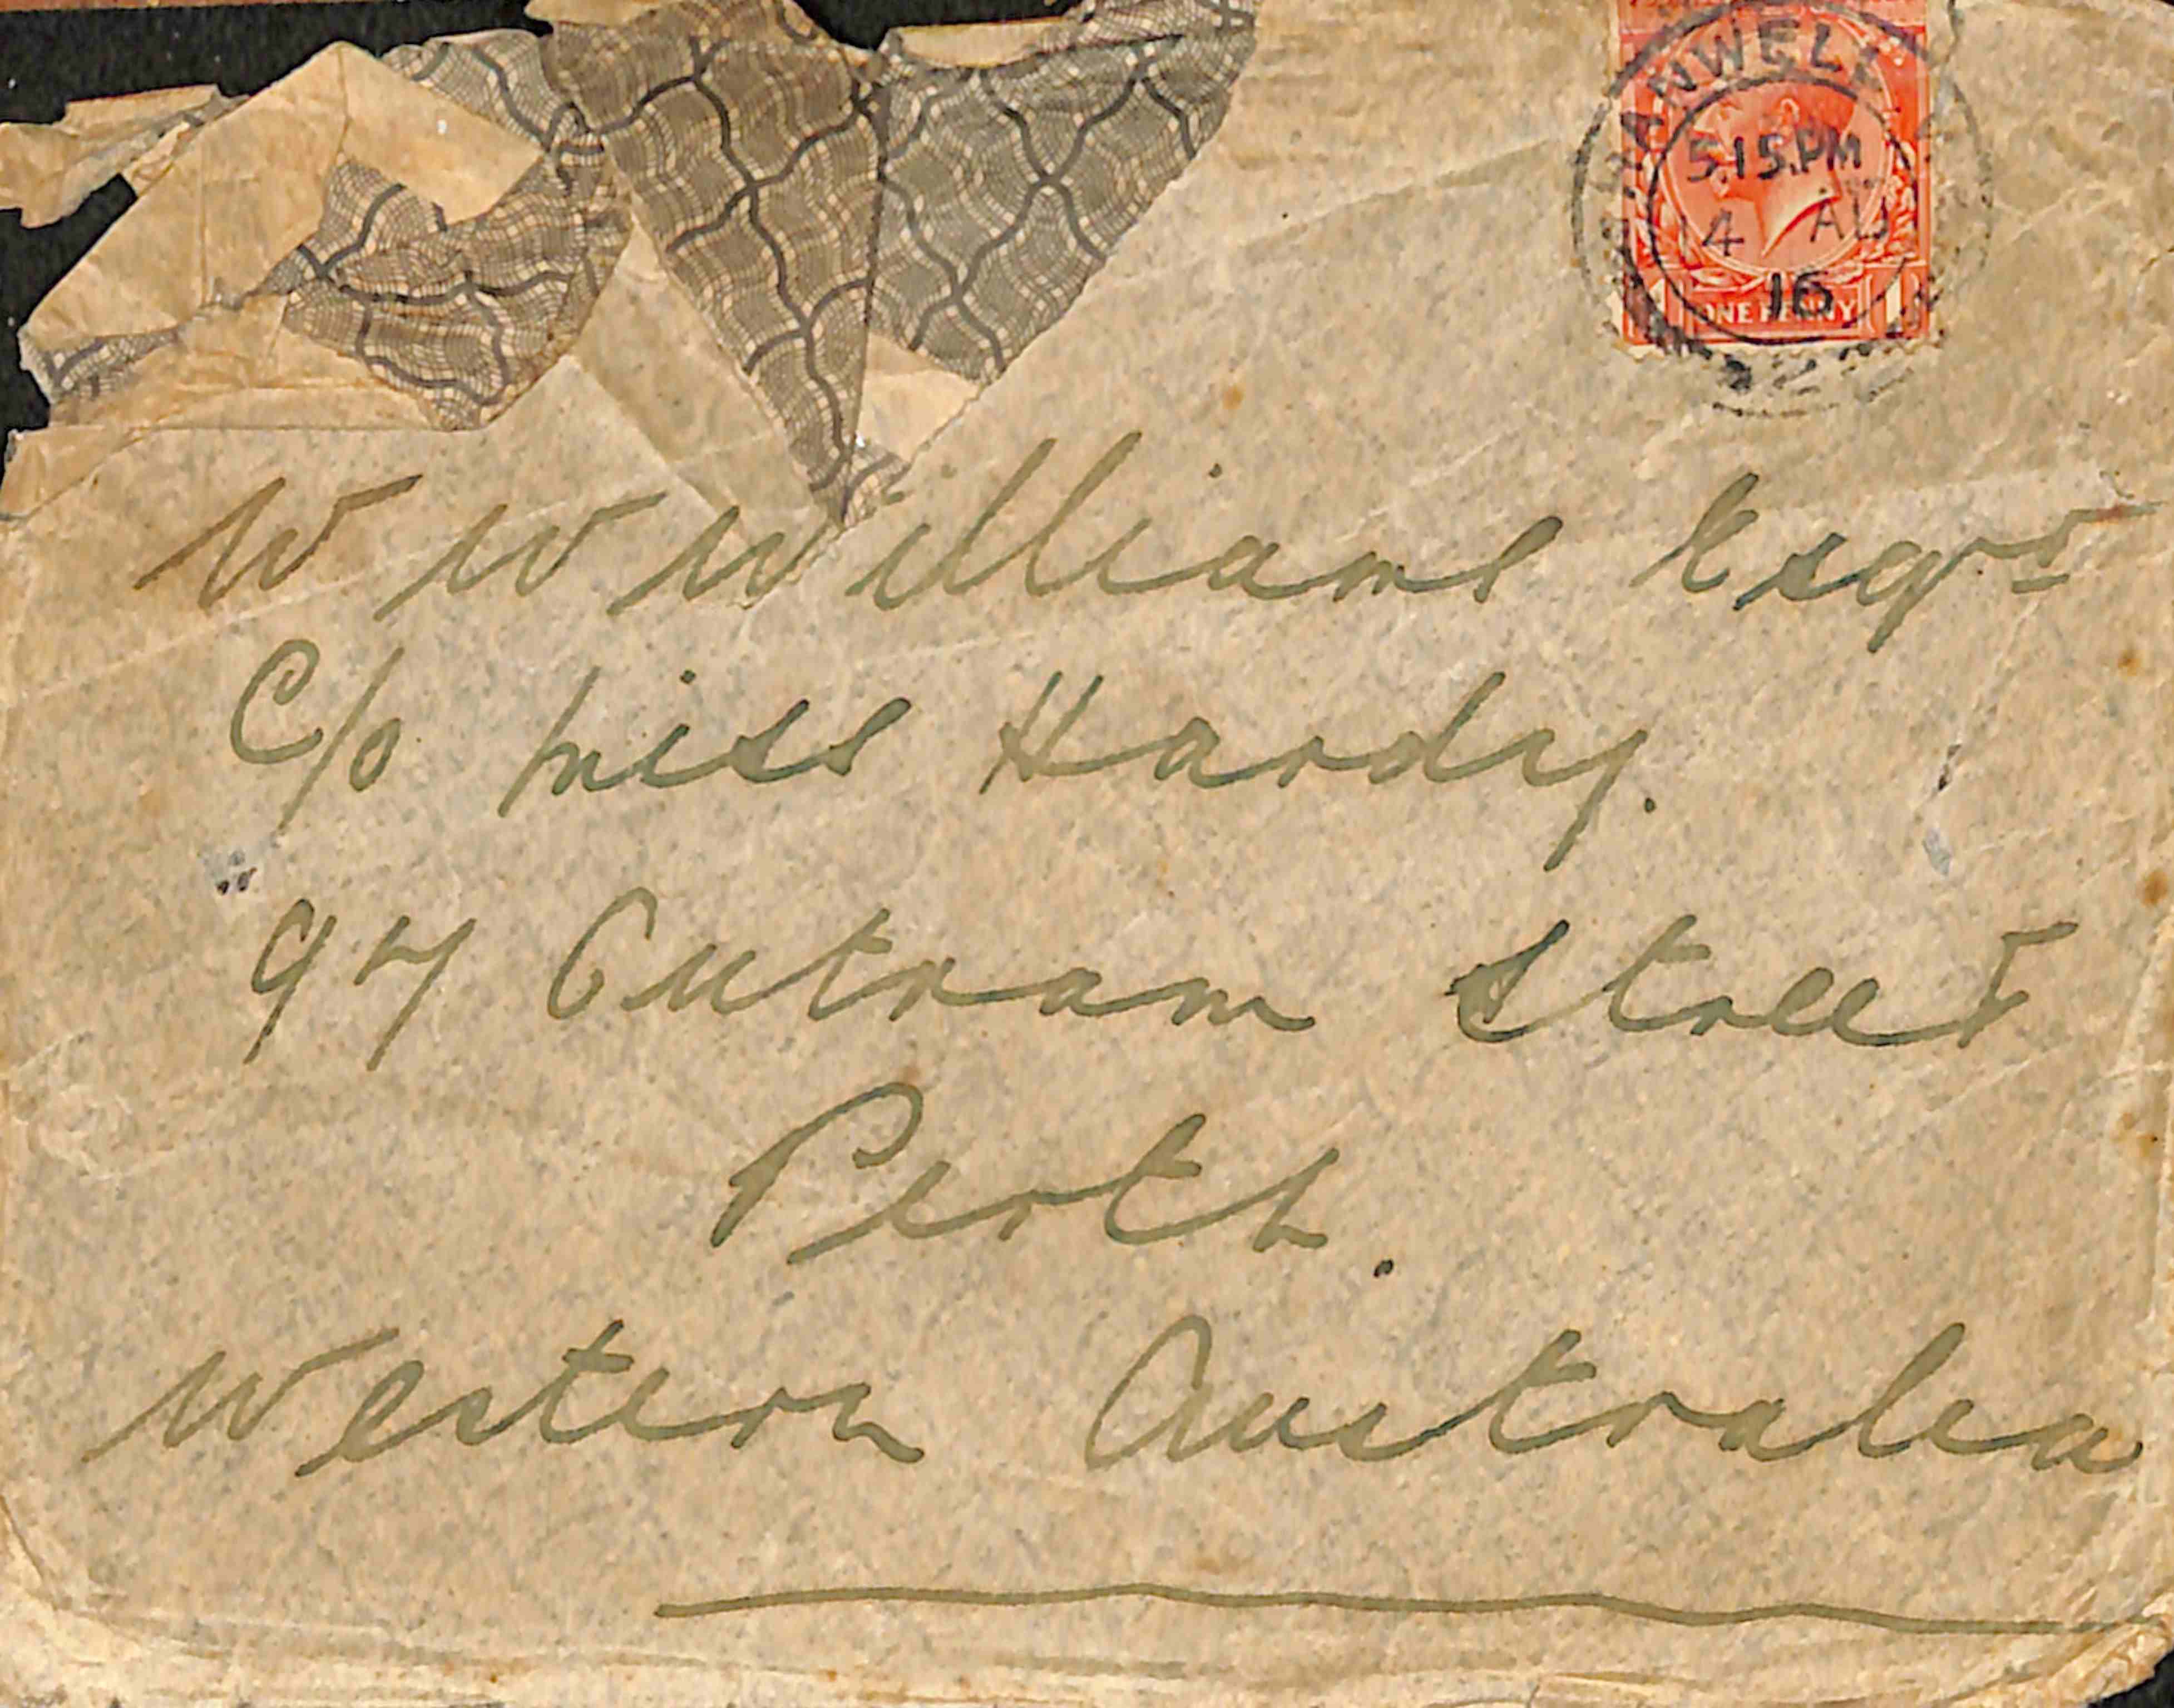 HANWELL
5.15.PM
4 AU
16
ONE PENNY
W W Williams Esqr
C/o Miss Hardy.
97 Outram Street
Perth.
Western Australia